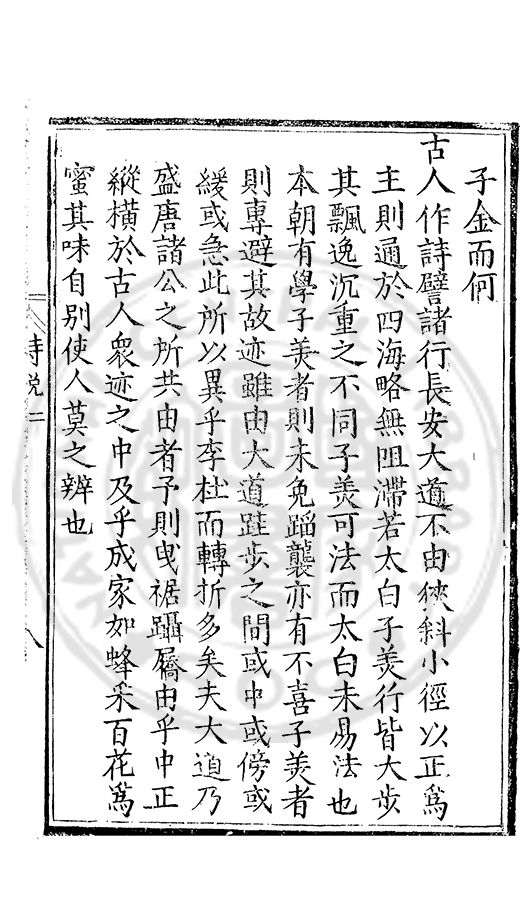 子金而何
古人作詩譬諸行長安大道不由狹斜小徑以正爲
主則通於四海略無阻滯若太白子美行皆大步
其飄逸沉重之不同子美可法而太白未易法也
本朝有學子美者則未免蹈襲亦有不喜子美者
則專避其故迹雖由大道跬步之間或中或傍或
緩或急此所以異乎李杜而轉折多矣夫大道乃
盛唐諸公之所共由者予則曳裾躡屩由乎中正
縱橫於古人衆迹之中及乎成家如蜂采百花爲
蜜其味自別使人莫之辨也
詩說二
八